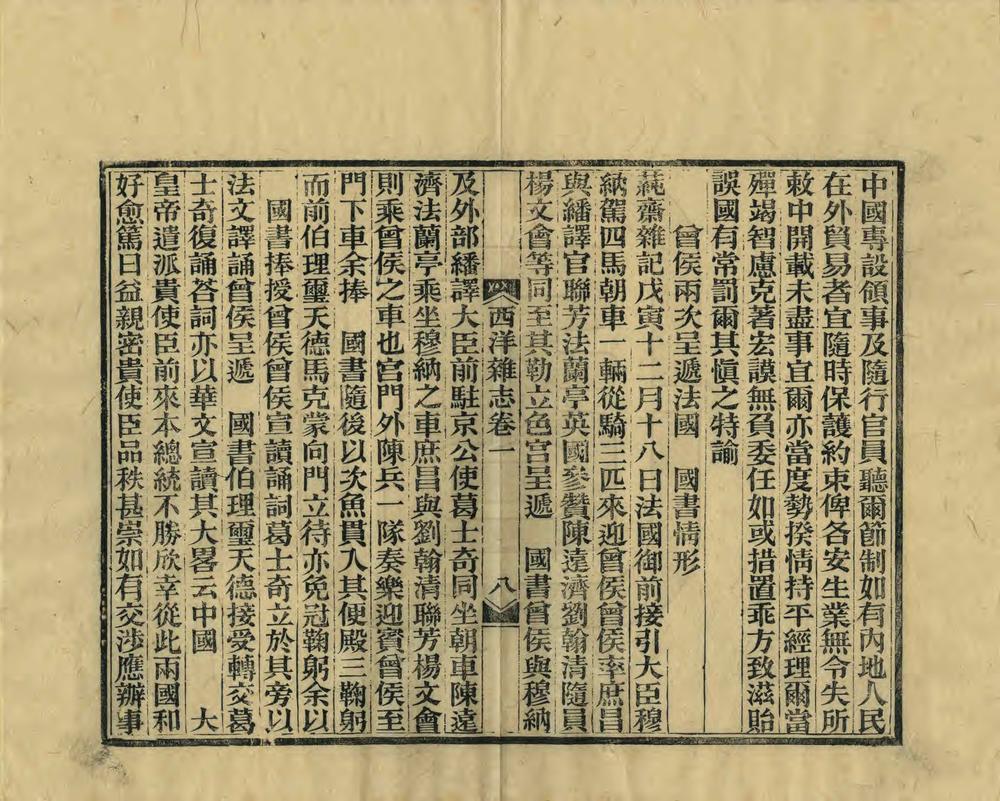 中國專設領事及隨行官員聽爾節制如有內地人民
在外貿易者宜隨時保護約束俾各安生業無令失所
敕中開載未盡事宜爾亦當度勢揆情持平經理爾當
殫竭智慮克著宏謨無負委任如或措置乖方致滋貽
誤國有常罰爾其愼之特諭
曾侯兩次呈遞法國　國書情形
蒓齋雜記戊寅十二月十八日法國御前接引大臣穆
納駕四馬朝車一輛從騎三匹來迎曾侯曾侯率庶昌
與繙譯官聯芳法蘭亭英國參贊陳遠濟劉翰清隨員
楊文會等同至其勒立色宮呈遞　國書曾侯與穆納
西洋雜志卷一　八
及外部繙譯大臣前駐京公使葛士奇同坐朝車陳遠
濟法蘭亭乘坐穆納之車庶昌與劉翰清聯芳楊文會
則乘曾侯之車也宮門外陳兵一隊奏樂迎賓曾侯至
門下車余捧　國書隨後以次魚貫入其便殿三鞠躬
而前伯理璽天德馬克蒙向門立待亦免冠鞠躬余以
國書捧授曾侯曾侯宣讀誦詞葛士奇立於其旁以
法文譯誦曾侯呈遞　國書伯理璽天德接受轉交葛
士奇復誦荅詞亦以華文宣讀其大畧云中國　大
皇帝遣派貴使臣前來本總統不勝欣幸從此兩國和
好愈篤日益親密貴使臣品秩甚崇如有交涉應辦事